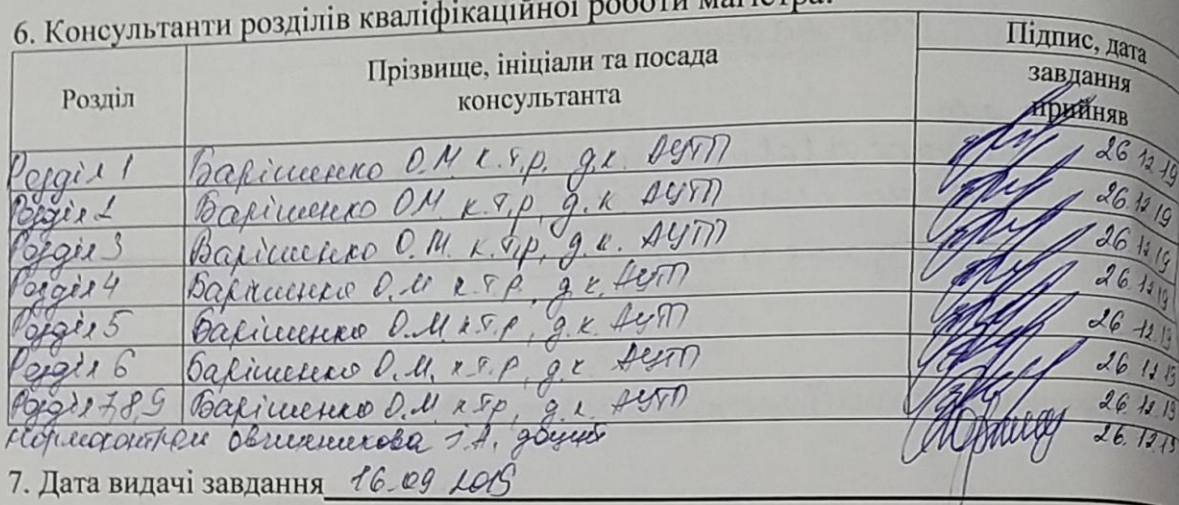 6. Консультанти розділів кваліфікаційної роботи магістра:
Розділ
Прізвище, ініціали та посада
консультанта
Підпис, дата
завдання
прийняв
Розділ 1 Барішенко О.М. к.т.р. д.к. АУТП 26.12.19
Розділ 2 Барішенко О.М. к.т.р, д.к АУТП 26.12.19
Розділ 3 Барішенко О.М. к.т.р, д.к. АУТП 26.12.19
Розділ 4 Барішенко О.М к.т.р, д.к. АУТП 26.12.19
Розділ 5 Барішенко О.М к.т.р, д.к. АУТП 26.12.19
Розділ 6 Барішенко О.М. к.т.р, д.к АУТП 26.12.19
Розділ 7,8,9 Барішенко О.М к.т.р, д.к. АУТП 26.12.19
Нормоконтроль Овчиннікова І.А, доцент 26.12.19
7. Дата видачі завдання 16.09 2019